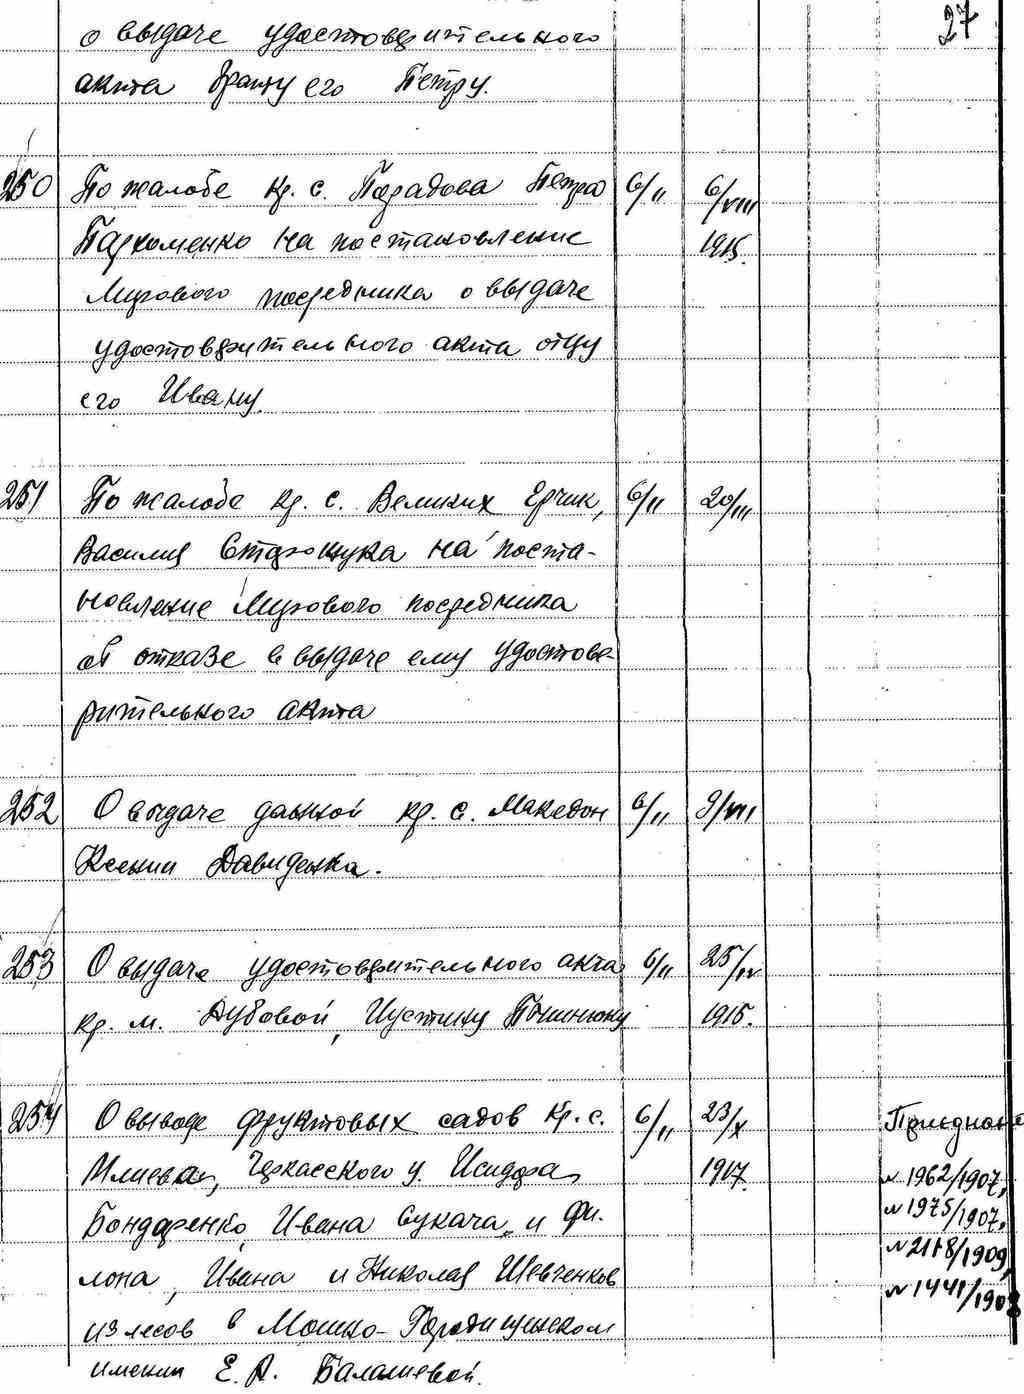 27
о выдаче удостоверительного
акта брату его Петру.
250 По жалобе кр. с. Парадова Петра 6/II 6/VIII
Пархоменко на постановление 1915.
Мирового посредника о выдаче
удостоверительного акта отцу
его Ивану.
251 По жалобе кр. с. Великих Ерчик, 6/II 20/III
Василия Сторощука на поста-
новление Мирового посредника
об отказе в выдаче ему удостове-
рительного акта
252 О выдаче данной кр. с. Македон 6/II 9/VII
Ксении Давиденка.
253 О выдаче удостоверительного акта 6/II 25/IV
кр. м. Дубовой, Иустину 1915.
254 О выводе фруктовых садов кр. с. 6/II 23/X
Млиева, Черкасского у. Исидора 1917.
Бондаренко, Ивана Сукача, и Фи-
лона, Ивана и Николая Шевченков
из лесов в Мошно-Городищенском
имении Е. А. Балашевой.
Приеднано
№ 1962/1907,
№ 1975/1907,
№ 2118/1909,
№ 1441/1908